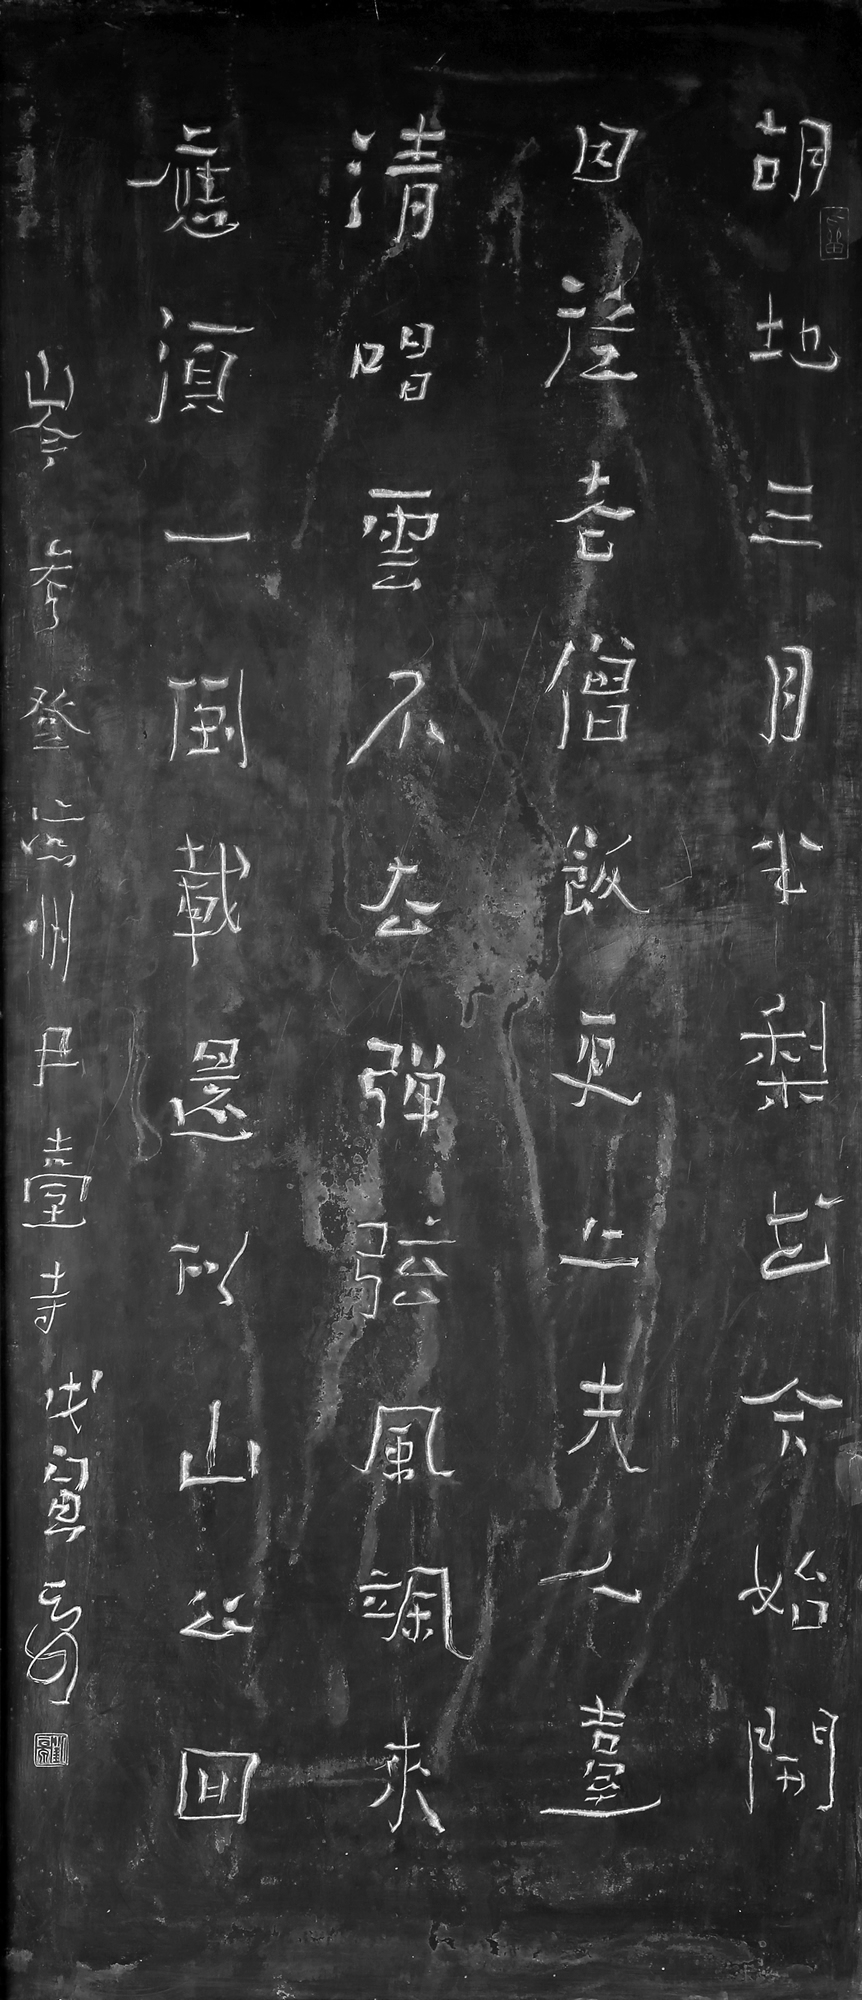 胡地三月半梨花今始開
因從老僧飯更上夫人臺
清唱雲不去彈弦風颯來
應須一倒載還似山公回
岑參登涼州尹臺寺 戊寅